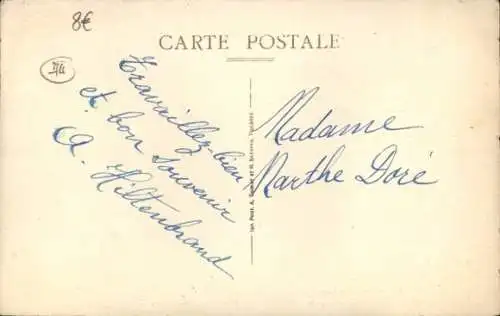 8€
CARTE POSTALE
Travaillez-bien
et bon souvenir
A. Hiltenbrand
Madame
Marthe Doré